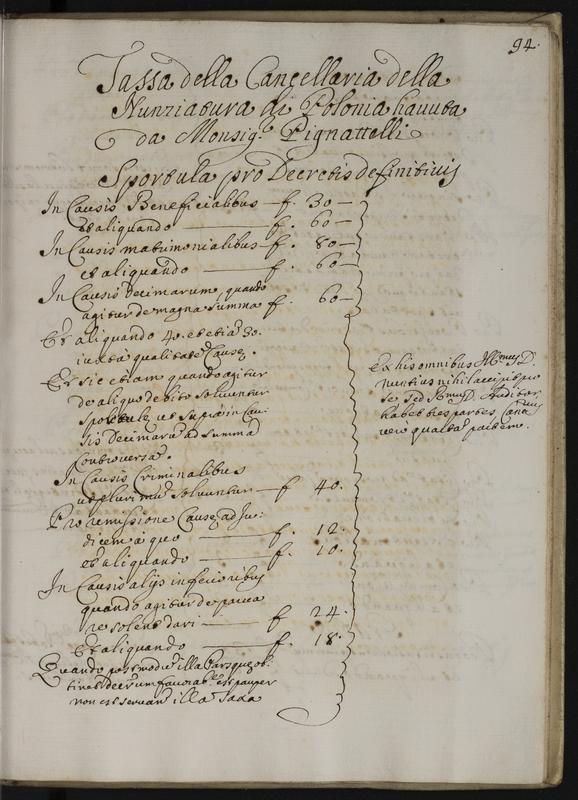 94.
Tassa della Cancellaria della
Nunziatura di Polonia havuta
da Monsig.r Pignattelli
Sportula pro Decretis definitivis
In Causis Beneficialibus — f. 30 —
et aliquando — f. 60 —
In Causis matrimonialibus — f. 80 —
et aliquando — f. 60 —
In Causis decimarum, quando
agitur de magna summa f. 60 —
Et aliquando 40. et etiã 30.
iuxta qualitatẽ Causę.
Et sic etiam quando agitur
de aliquo debito solvuntur
sportulę ut supra in Cau-
sis decimarũ ad summã
Controversã.
In Causis Criminalibus
ut plurimũ solvuntur — f 40.
Pro remissione Causę ad Ju-
dicem à quo — f. 12.
et aliquando — f. 10.
In Causis alijs inferioribus
quando agitur de pauca
re solent dari — f 24.
Et aliquando — f. 18.
Quando postmodũ illa Pars quę ob-
tinet decretum favorab.le est pauper
non est servan illa Taxa
Ex his omnibus Ill.mus D.
nuntius nihil accipit pro
se sed R.mus D. Auditor
habet tres partes Canc.rius
vero quartã partem.